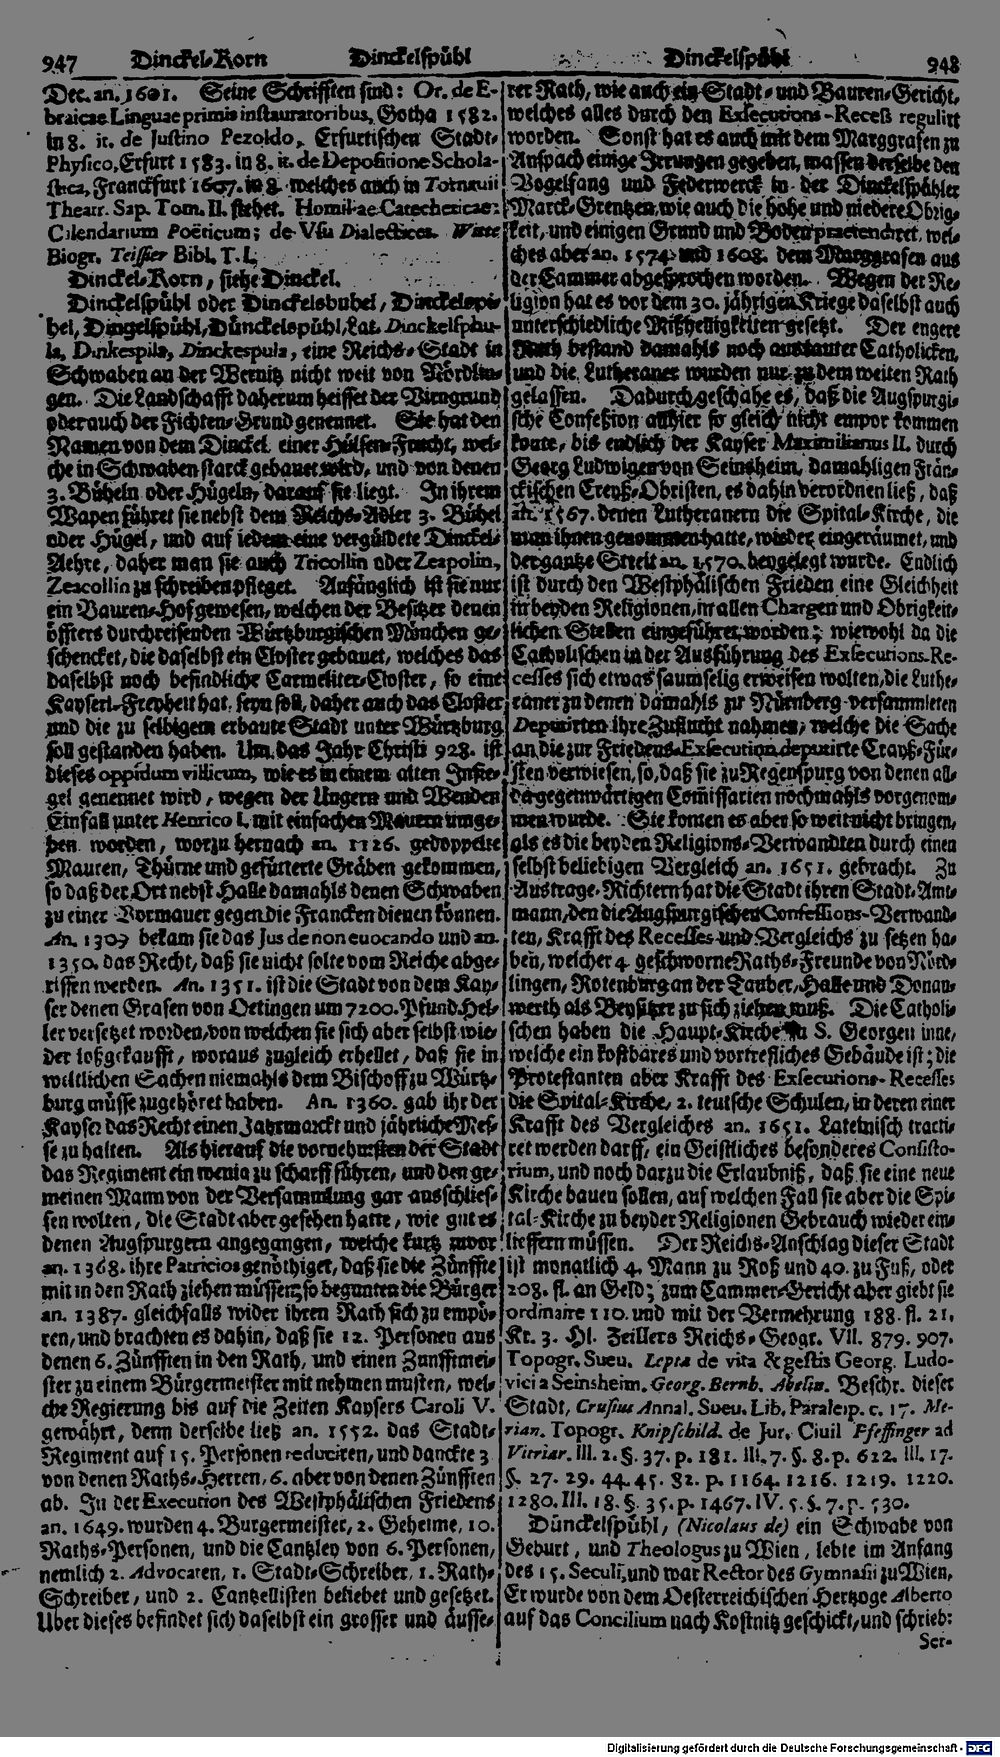 947 Dinckel-Korn Dinckelspühl
Dinckelspühl 948
Dec. an. 1601. Seine Schrifften sind: Or. de E-
braicae Linguae primis instauratoribus, Gotha 1582.
in 8. it. de Justino Pezoldo, Erfurtischen Stadt-
Physico, Erfurt 1583. in 8. it. de Depositione Schola-
stica, Franckfurt 1607. in 8. welches auch in Tornauii
Theatr. Sap. Tom. II. stehet. Homiliae Catecheticae;
Calendarium Poëticum; de Vsu Dialectices. Witte
Biogr. Teissier Bibl. T. I.
Dinckel-Korn, siehe Dinckel.
Dinckelspühl oder Dinckelsbuhel, Dinckelspi-
hel, Dingelspühl, Dünckelspühl, Lat. Dinckelsphu-
la, Dinkespila, Dinckespula, eine Reichs-Stadt in
Schwaben an der Wernitz nicht weit von Nördlin-
gen. Die Landschafft daherum heisset der Virngrund
oder auch der Fichten-Grund genennet. Sie hat den
Namen von dem Dinckel einer Hülsen-Frucht, wel-
che in Schwaben starck gebauet wird, und von denen
3. Büheln oder Hügeln, darauf sie liegt. In ihrem
Wapen führet sie nebst dem Reichs-Adler 3. Bühel
oder Hügel, und auf iedem eine vergüldete Dinckel-
Aehre, daher man sie auch Tricollin oder Zeapolin,
Zeacollin zu schreiben pfleget. Anfänglich ist sie nur
ein Bauren-Hof gewesen, welchen der Besitzer denen
öffters durchreisenden Würtzburgischen Mönchen ge-
schencket, die daselbst ein Closter gebauet, welches das
daselbst noch befindliche Carmeliter-Closter, so eine
Kayserl. Freyheit hat, seyn soll, daher auch das Closter
und die zu selbigem erbaute Stadt unter Würtzburg
soll gestanden haben. Um das Jahr Christi 928. ist
dieses oppidum villicum, wie es in einem alten Insie-
gel genennet wird, wegen der Ungern und Wenden
Einfall unter Henrico I. mit einfachen Mauern umge-
ben worden, worzu hernach an. 1126. gedoppelte
Mauren, Thürne und gefütterte Gräben gekommen,
so daß der Ort nebst Halle damahls denen Schwaben
zu einer Vormauer gegen die Francken dienen können.
An. 1309 bekam sie das Jus de non euocando und an.
1350. das Recht, daß sie nicht solte vom Reiche abge-
rissen werden. An. 1351. ist die Stadt von dem Kay-
ser denen Grafen von Oetingen um 7200. Pfund Hel-
ler versetzet worden, von welchen sie sich aber selbst wie-
der loßgekaufft, woraus zugleich erhellet, daß sie in
weltlichen Sachen niemahls dem Bischoff zu Würtz-
burg müsse zugehöret haben. An. 1360. gab ihr der
Kayser das Recht einen Jahrmarckt und jährliche Mes-
se zu halten. Als hierauf die vornehmsten der Stadt
das Regiment ein wenig zu scharff führen, und den ge-
meinen Mann von der Versammlung gar ausschlies-
sen wolten, die Stadt aber gesehen hatte, wie gut es
denen Augspurgern angegangen, welche kurtz zuvor
an. 1368. ihre Patricios genöthiget, daß sie die Zünffte
mit in den Rath ziehen müssen; so begunten die Bürger
an. 1387. gleichfalls wider ihren Rath sich zu empö-
ren, und brachten es dahin, daß sie 12. Personen aus
denen 6. Zünfften in den Rath, und einen Zunfftmei-
ster zu einem Bürgermeister mit nehmen musten, wel-
che Regierung bis auf die Zeiten Kaysers Caroli V.
gewährt, denn derselbe ließ an. 1552. das Stadt-
Regiment auf 15. Personen reduciren, und danckte 3
von denen Raths-Herren, 6. aber von denen Zünfften
ab. In der Execution des Westphälischen Friedens
an. 1649. wurden 4. Burgermeister, 2. Geheime, 10.
Raths-Personen, und die Cantzley von 6. Personen,
nemlich 2. Advocaten, 1. Stadt-Schreiber, 1. Rath-
Schreiber, und 2. Cantzellisten beliebet und gesetzet.
Uber dieses befindet sich daselbst ein grosser und äusse-
rer Rath, wie auch ein Stadt- und Bauren-Gericht,
welches alles durch den Exsecutions-Receß regulirt
worden. Sonst hat es auch mit dem Marggrafen zu
Anspach einige Irrungen gegeben, massen derselbe den
Vogelfang und Federwerck in der Dinckelspühler
Marck-Grentzen, wie auch die hohe und niedere Obrig-
keit, und einigen Grund und Boden praetendiret, wel-
ches aber an. 1574. und 1608. dem Marggrafen aus
der Cammer abgesprochen worden. Wegen der Re-
ligion hat es vor dem 30. jährigen Kriege daselbst auch
unterschiedliche Mißhelligkeiten gesetzt. Der engere
Rath bestand damahls noch aus lauter Catholicken,
und die Lutheraner wurden nur zu dem weiten Rath
gelassen. Dadurch geschahe es, daß die Augspurgi-
sche Confeßion allhier so gleich nicht empor kommen
konte, bis endlich der Kayser Maximilianus II. durch
Georg Ludwigen von Seinsheim, damahligen Frän-
ckischen Creyß-Obristen, es dahin verordnen ließ, daß
an. 1567. denen Lutheranern die Spital-Kirche, die
man ihnen genommen hatte, wieder eingeräumet, und
der gantze Streit an. 1570. beygelegt wurde. Endlich
ist durch den Westphälischen Frieden eine Gleichheit
in beyden Religionen, in allen Chargen und Obrigkeit-
lichen Stellen eingeführet worden; wiewohl da die
Catholischen in der Ausführung des Exsecutions-Re-
cesses sich etwas saumselig erweisen wolten, die Luthe-
raner zu denen damahls zu Nürnberg versammleten
Deputirten ihre Zuflucht nahmen, welche die Sache
an die zur Friedens-Exsecution deputirte Crayß-Für-
sten verwiesen, so, daß sie zu Regenspurg von denen all-
da gegenwärtigen Com̃issarien nochmahls vorgenom-
men wurde. Sie konten es aber so weit nicht bringen,
als es die beyden Religions-Verwandten durch einen
selbst beliebigen Vergleich an. 1651. gebracht. Zu
Austrags-Richtern hat die Stadt ihren Stadt-Amt-
mann, den die Augspurgischen Confessions-Verwand-
ten, Krafft des Recesses und Vergleichs zu setzen ha-
ben, welcher 4 geschworne Raths-Freunde von Nörd-
lingen, Rotenburg an der Tauber, Halle und Donau-
werth als Beysitzer zu sich ziehen muß. Die Catholi-
schen haben die Haupt-Kirche zu S. Georgen inne,
welche ein kostbares und vortrefliches Gebäude ist; die
Protestanten aber Krafft des Exsecutions-Recesses
die Spital-Kirche, 2. teutsche Schulen, in deren einer
Krafft des Vergleiches an. 1651. Lateinisch tracti-
ret werden darff, ein Geistliches besonderes Consisto-
rium, und noch darzu die Erlaubniß, daß sie eine neue
Kirche bauen sollen, auf welchen Fall sie aber die Spi-
tal-Kirche zu beyder Religionen Gebrauch wieder ein-
lieffern müssen. Der Reichs-Anschlag dieser Stadt
ist monatlich 4. Mann zu Roß und 40. zu Fuß, oder
208. fl. an Geld; zum Cammer-Gericht aber giebt sie
ordinaire 110. und mit der Vermehrung 188. fl. 21.
Kr. 3. Hl. Zeillers Reichs-Geogr. VII. 879. 907.
Topogr. Sueu. Lepta de vita & gestis Georg. Ludo-
vici a Seinsheim. Georg. Bernb. Abelin. Beschr. dieser
Stadt, Crusius Annal. Sueu. Lib. Paraleip. c. 17. Me-
rian. Topogr. Knipschild. de Jur. Ciuil Pfeffinger ad
Vitriar. III. 2. §. 37. p. 181. III. 7. §. 8. p. 622. III. 17.
§. 27. 29. 44. 45. 82. p. 1164. 1216. 1219. 1220.
1280. III. 18. §. 35. p. 1467. IV. 5. §. 7. p. 530.
Dünckelspühl, (Nicolaus de) ein Schwabe von
Geburt, und Theologus zu Wien, lebte im Anfang
des 15. Seculi, und war Rector des Gymnasii zu Wien.
Er wurde von dem Oesterreichischen Hertzoge Alberto
auf das Concilium nach Kostnitz geschickt, und schrieb:
Ser-
Digitalisierung gefördert durch die Deutsche Forschungsgemeinschaft - DFG